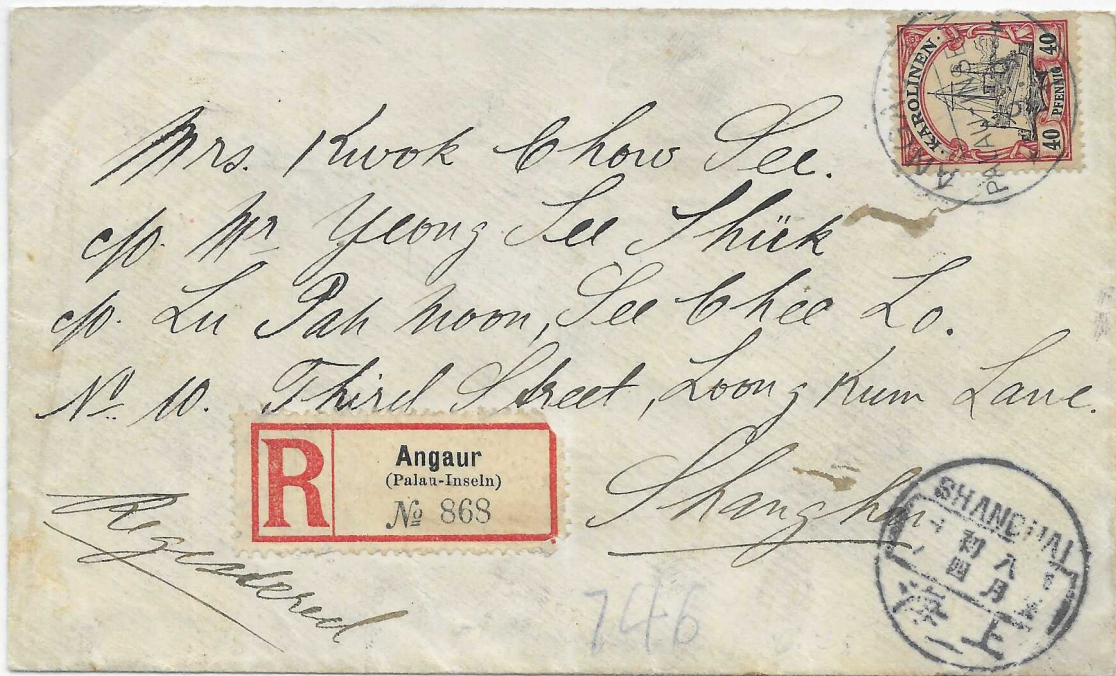 KAROLINEN
40 PFENNIG 40
PALAU-INSELN
Mrs. Kwok Chow See.
c/o. Mr Yeong See Shük
c/o. Lu Pah Moon, See Chee Lo.
No. 10. Third Street, Loong Kum Lane.
Shanghai
R
Angaur
(Palau-Inseln)
№ 868
Registered
746
SHANGHAI
八月
初四
上海